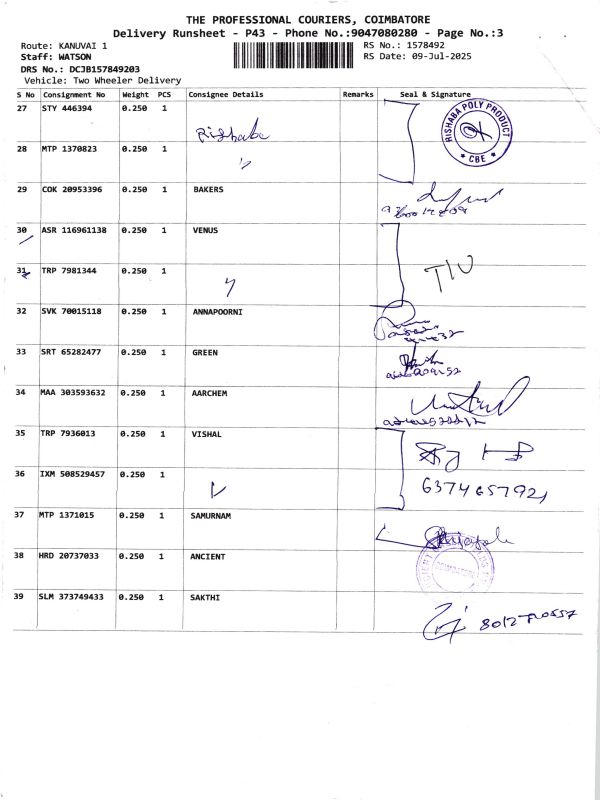 THE PROFESSIONAL COURIERS, COIMBATORE
Delivery Runsheet - P43 - Phone No.:9047080280 - Page No.:3
Route: KANUVAI 1
RS No.: 1578492
Staff: WATSON
RS Date: 09-Jul-2025
DRS No.: DCJB157849203
Vehicle: Two Wheeler Delivery
S No Consignment No Weight PCS Consignee Details Remarks Seal & Signature
27 STY 446394 0.250 1 Rishaba
RISHABA POLY PRODUCT
* CBE *
28 MTP 1370823 0.250 1
29 COK 20953396 0.250 1 BAKERS
30 ASR 116961138 0.250 1 VENUS
31 TRP 7981344 0.250 1
32 SVK 70015118 0.250 1 ANNAPOORNI
33 SRT 65282477 0.250 1 GREEN
34 MAA 303593632 0.250 1 AARCHEM
35 TRP 7936013 0.250 1 VISHAL
36 IXM 508529457 0.250 1
6374657921
37 MTP 1371015 0.250 1 SAMURNAM
38 HRD 20737033 0.250 1 ANCIENT
39 SLM 373749433 0.250 1 SAKTHI